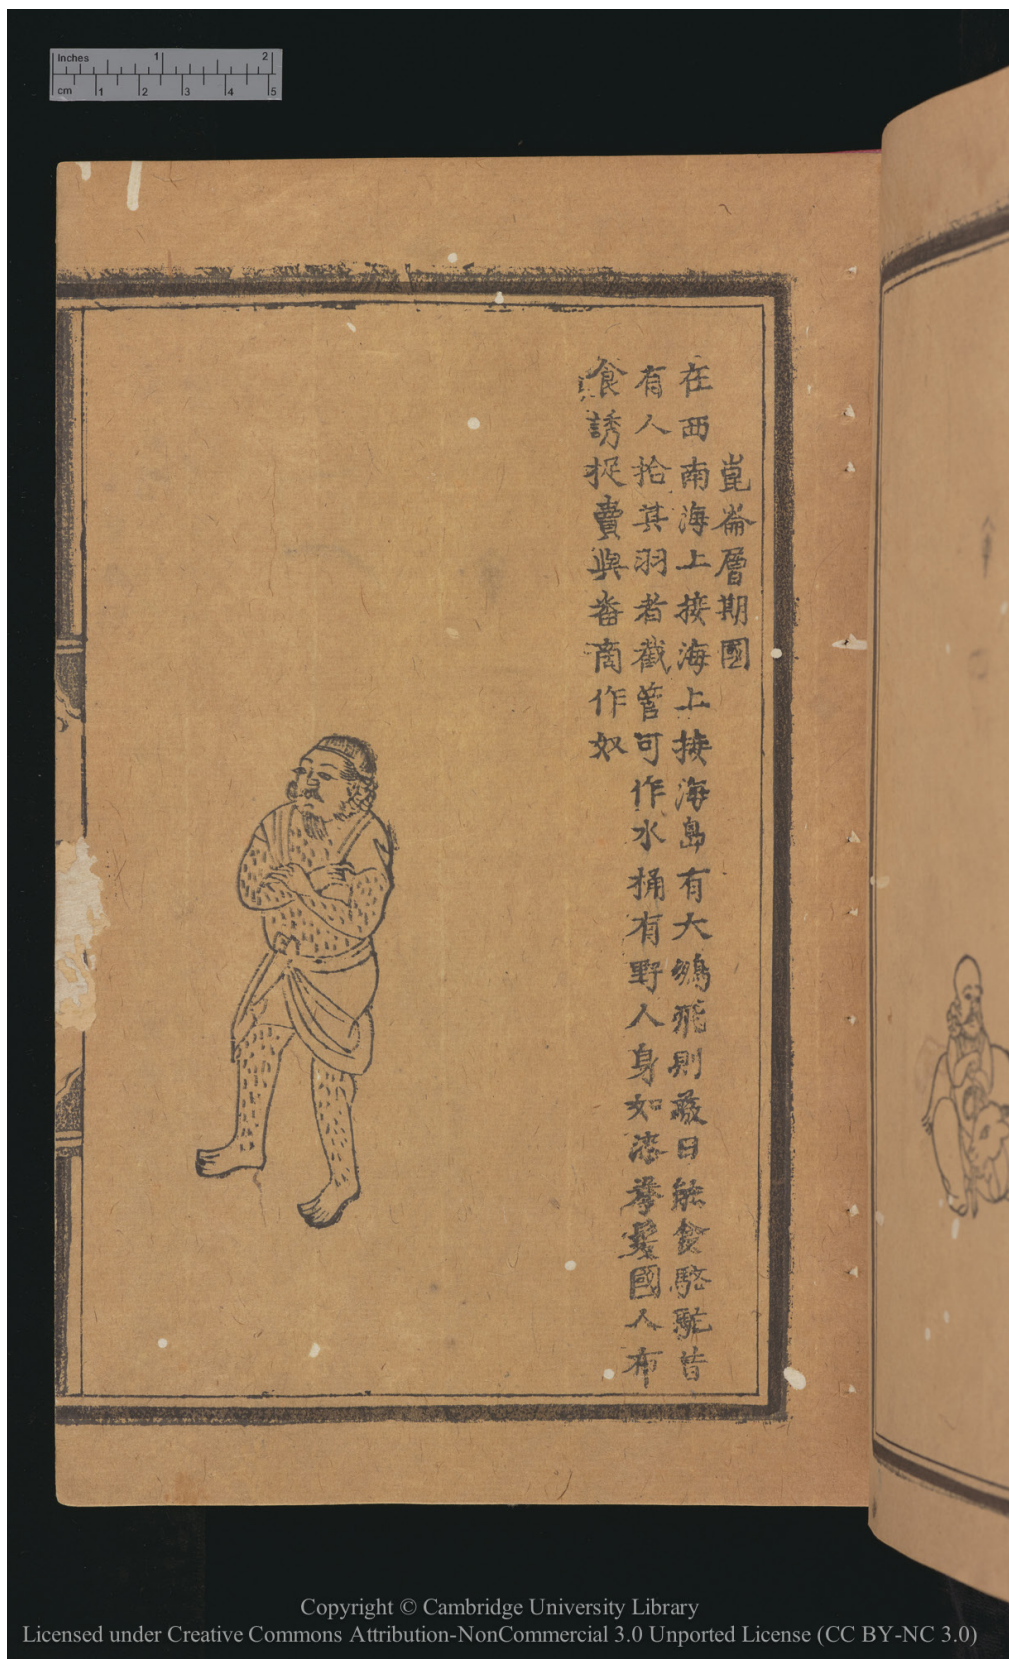 崑崙層期國
在西南海上接海上接海島有大鵬飛則蔽日能食駱駝昔
有人拾其羽者截管可作水桶有野人身如漆拳髮國人布
食誘捉賣與番商作奴
Inches 1 2
cm 1 2 3 4 5
Copyright © Cambridge University Library
Licensed under Creative Commons Attribution-NonCommercial 3.0 Unported License (CC BY-NC 3.0)